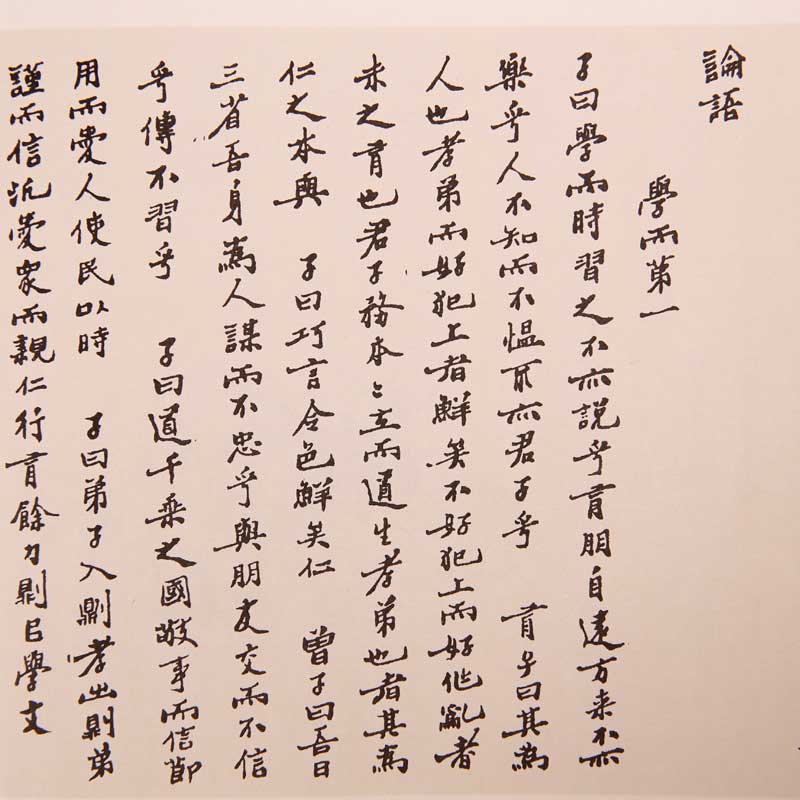 論語
學而第一
子曰學而時習之不亦説乎有朋自遠方来不亦
樂乎人不知而不愠不亦君子乎　有子曰其為
人也孝弟而好犯上者鮮矣不好犯上而好作亂者
未之有也君子務本〻立而道生孝弟也者其為
仁之本與　子曰巧言令色鮮矣仁　曾子曰吾日
三省吾身為人謀而不忠乎與朋友交而不信
乎傳不習乎　子曰道千乘之國敬事而信節
用而愛人使民以時　子曰弟子入則孝出則弟
謹而信汎愛衆而親仁行有餘力則以學文